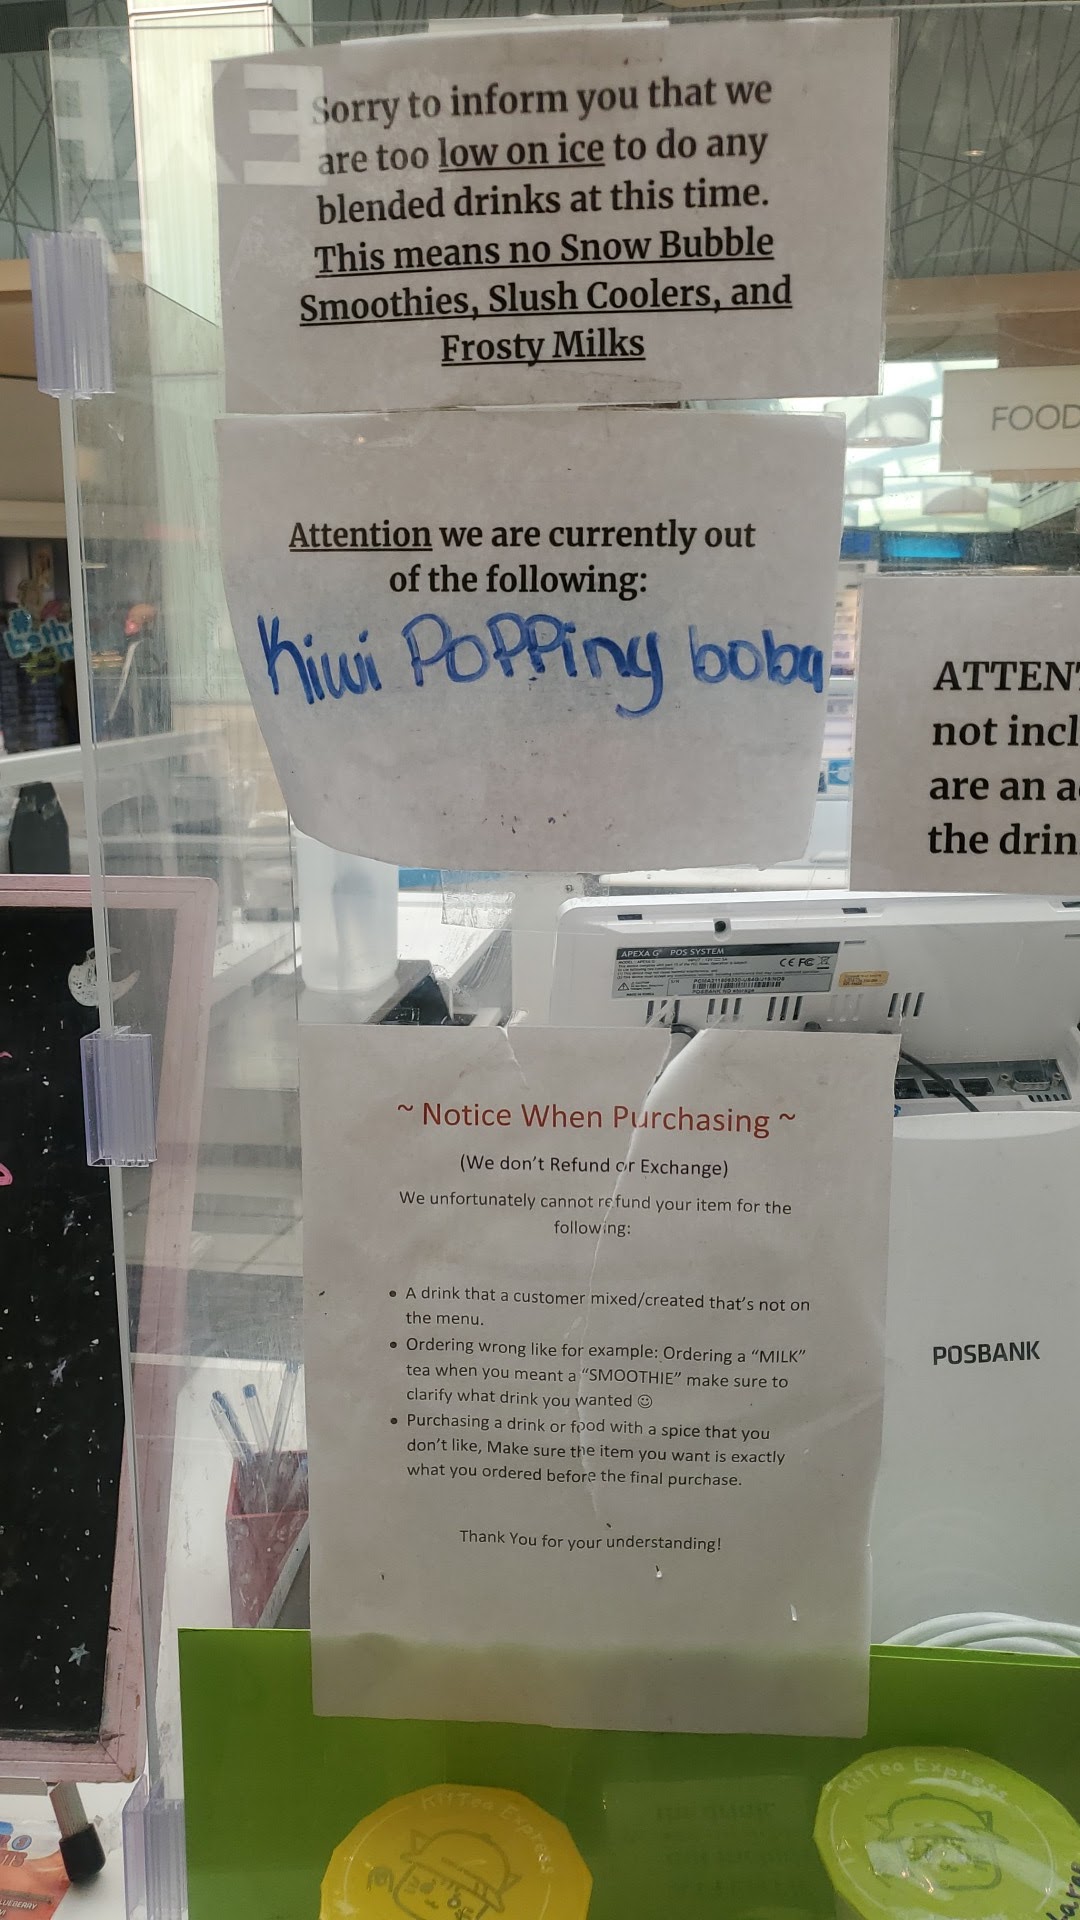 Sorry to inform you that we
are too low on ice to do any
blended drinks at this time.
This means no Snow Bubble
Smoothies, Slush Coolers, and
Frosty Milks
FOOD
Attention we are currently out
of the following:
Kiwi POPPing boba
ATTEN
not incl
are an a
the drin
APEXA G POS SYSTEM
~ Notice When Purchasing ~
(We don't Refund or Exchange)
We unfortunately cannot refund your item for the
following:
• A drink that a customer mixed/created that's not on
the menu.
• Ordering wrong like for example: Ordering a "MILK"
tea when you meant a "SMOOTHIE" make sure to
clarify what drink you wanted ☺
• Purchasing a drink or food with a spice that you
don't like, Make sure the item you want is exactly
what you ordered before the final purchase.
Thank You for your understanding!
POSBANK
KitTea Express
KitTea Express